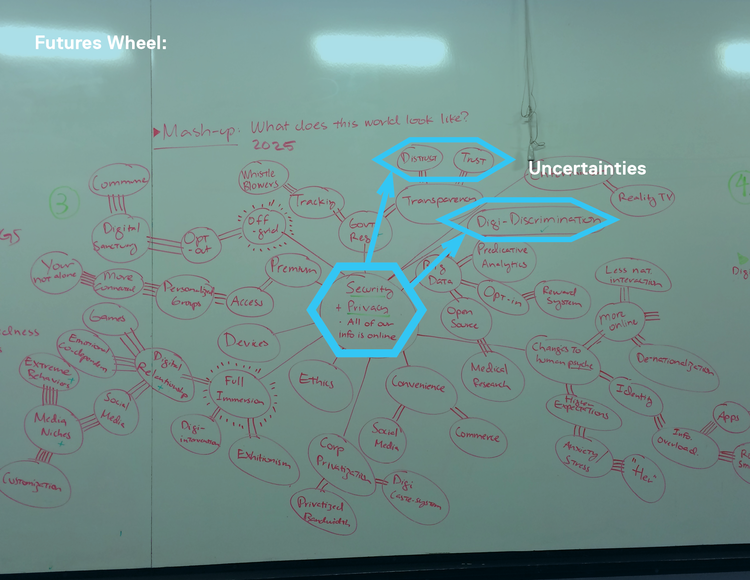 Futures Wheel:
▸Mash-up. What does this world look like?
2025
Distrust
Trust
Uncertainties
Reality TV
Whistle
Blowers
Commune
3
4
Tracking
Transparency
Digi-Discrimination
Off
-grid
Govt
Reg
Digital
Sanctuary
Opt
-out
Predicative
Analytics
Your
not alone
More
Connected
Personalized
Groups
Access
Premium
Big
Data
Opt-in
Reward
System
Less nat
interaction
Security
+ Privacy
- All of our
info is online
Open
Source
more
online
Games
Emotional
Co-dependen
Devices
Digital
Relationship
Extreme
Behaviors
Full
Immersion
Ethics
Convenience
Medical
Research
Changes to
human psyche
De-nationalization
Identity
Higher
Expectations
Social
Media
Media
Niches
Digi-
intervention
Exhibitionism
Social
Media
Commerce
Corp
Privatization
Digi
Caste-system
Privatized
Bandwidth
Anxiety
Stress
"Her"
Info
overload
Apps
Customization